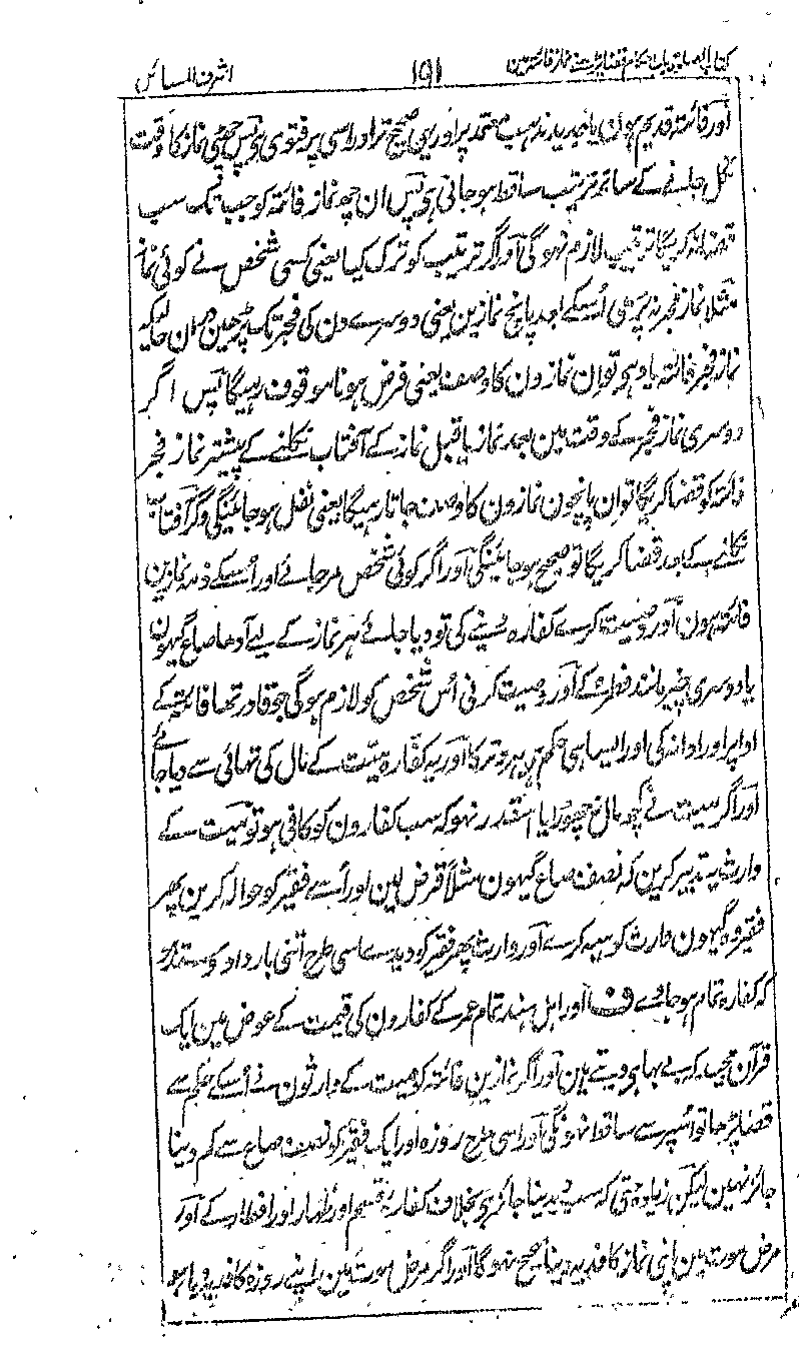 کتاب الصلوۃ باب احکام قضا پڑھنے نماز فائتہ مین ۱۹۱ اشرف المسائل
اور فائتہ قدیم ہون یا جدید مذہب معتمد پر اور یہی صحیح تر اور اسی پر فتوی ہی پس چھٹی نماز کا وقت
نکل جانے کے ساتھ ترتیب ساقط ہو جاتی ہی پس ان چھ نماز فائتہ کو جب تک سب
قضا نہ کریگا ترتیب لازم نہوگی اور اگر ترتیب کو ترک کیا یعنی کسی شخص نے کوئی نماز
مثلا نماز فجر نہ پڑھی اُسکے بعد پانچ نمازین یعنی دوسرے دن کی فجر تک پڑھین در ان حالیکہ
نماز فجر فائتہ یاد ہی تو ان نمازون کا وصف یعنی فرض ہونا موقوف رہیگا پس اگر
دوسری نماز فجر کے وقت مین بعد نماز یا قبل نماز کے آفتاب نکلنے کے پیشتر نماز فجر
فائتہ کو قضا کریگا تو ان پانچون نمازون کا وصف جاتا رہیگا یعنی نفل ہو جائینگی وگر آفتاب
نکلنے کے بعد قضا کریگا تو صحیح ہو جائینگی اور اگر کوئی شخص مر جائے اور اُسکے ذمہ نمازین
فائتہ ہون اور وصیت کرے کفارہ دینے کی تو دیا جائے ہر نماز کے لیے آدھا صاع گیہون
یا دوسری چیز مانند فطرہ کے اور وصیت کرنی اُس شخص کو لازم ہوگی جو قادر تھا فائتہ کے
ادا پر اور ادا نہ کی اور ایسا ہی حکم ہی وتر کا اور یہ کفارہ میّت کے مال کی تہائی سے دیا جائے
اور اگر میت نے کچھ مال نچھوڑا یا اسقدر نہو کہ سب کفارون کو کافی ہو تو میت کے
وارث یہ تدبیر کرین کہ نصف صاع گیہون مثلاً قرض لین اور اُسے فقیر کو حوالہ کرین پھر
فقیر وہ گیہون وارث کو ہبہ کرے اور وارث پھر فقیر کو دیدے اسی طرح اتنی بار داد و ستد کرے
کہ کفارہ تمام ہو جاوے ف اور اہل ہند تمام عمر کے کفارون کی قیمت کے عوض مین ایک
قرآن مجید کہ بے بہا ہی دیتے ہین اور اگر نمازین فائتہ کو میت کے وارثون نے اُسکے حکم سے
قضا پڑھا تو اُسپر سے ساقط نہونگی اور اسی طرح روزہ اور ایک فقیر کو نصف صاع سے کم دینا
جائز نہین لیکن زیادہ حتی کہ سب دیدینا جائز ہی بخلاف کفارہ قسم اور ظہار اور افطار کے اور
مرض موت مین اپنی نماز کا فدیہ دینا صحیح نہوگا اور اگر مرض موت مین اپنے روزہ کا فدیہ دیا ہو